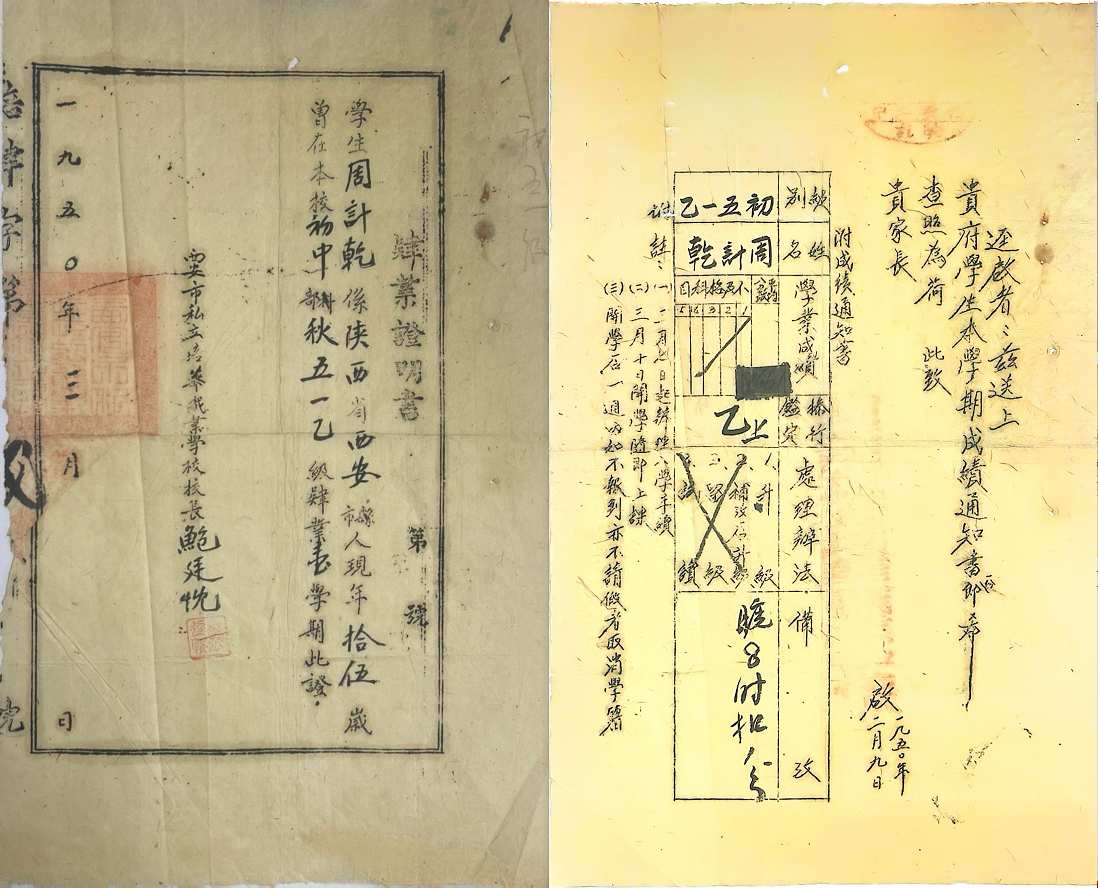 肄業證明書
第 號
學生周計乾係陝西省西安縣市人現年拾伍歲
曾在本校初中部秋五一乙級肄業壹學期此證
西安市私立培華職業學校校長鮑廷忱
一九五〇年三月 日
逕啟者:茲送上
貴府學生本學期成績通知書一份即希
查照為荷 此致
貴家長
啟 一九五〇年二月九日
附成績通知書
級別 姓名 學業成績 操行鑑定 處理辦法 備攷
初五一乙 周計乾
不及格科目
1 2 3 4 5
乙上
1. 計級
2. 補考后計級
3. 留級
曠8时扣4分
附註:
(一) 二月七日起辦理入學手續
(二) 三月十日開學隨即上課
(三) 開學后一週內如不報到亦不請假者取消學籍